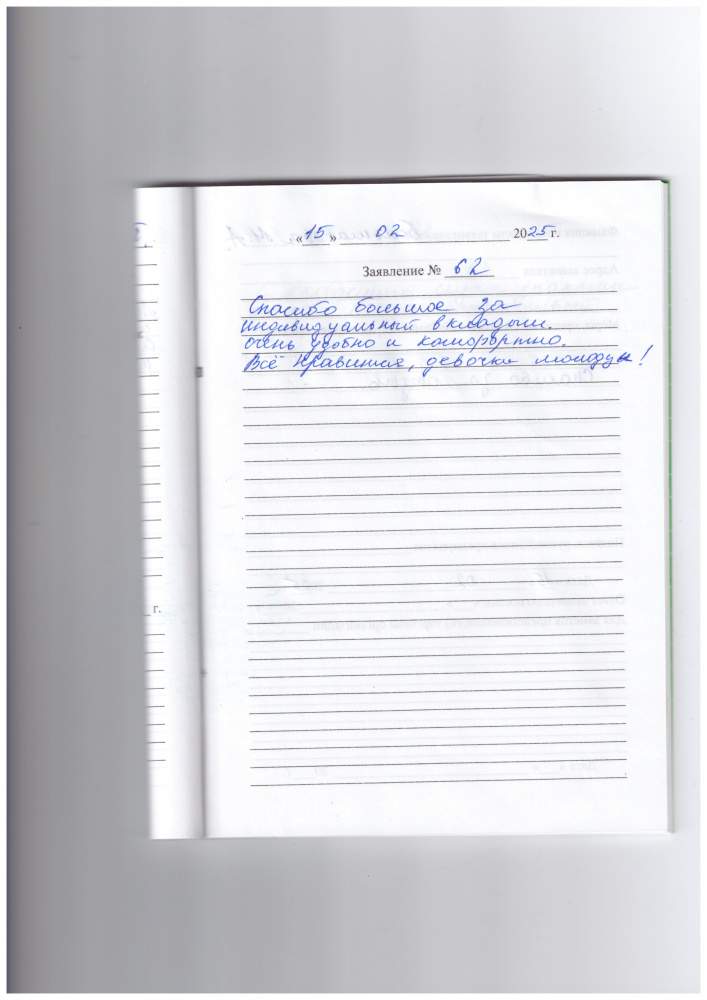 «15» 02 2025 г.
Заявление № 62
Спасибо большое за
индивидуальный вкладыш.
очень удобно и комфортно.
Всё нравится, девочки молодцы!
г.